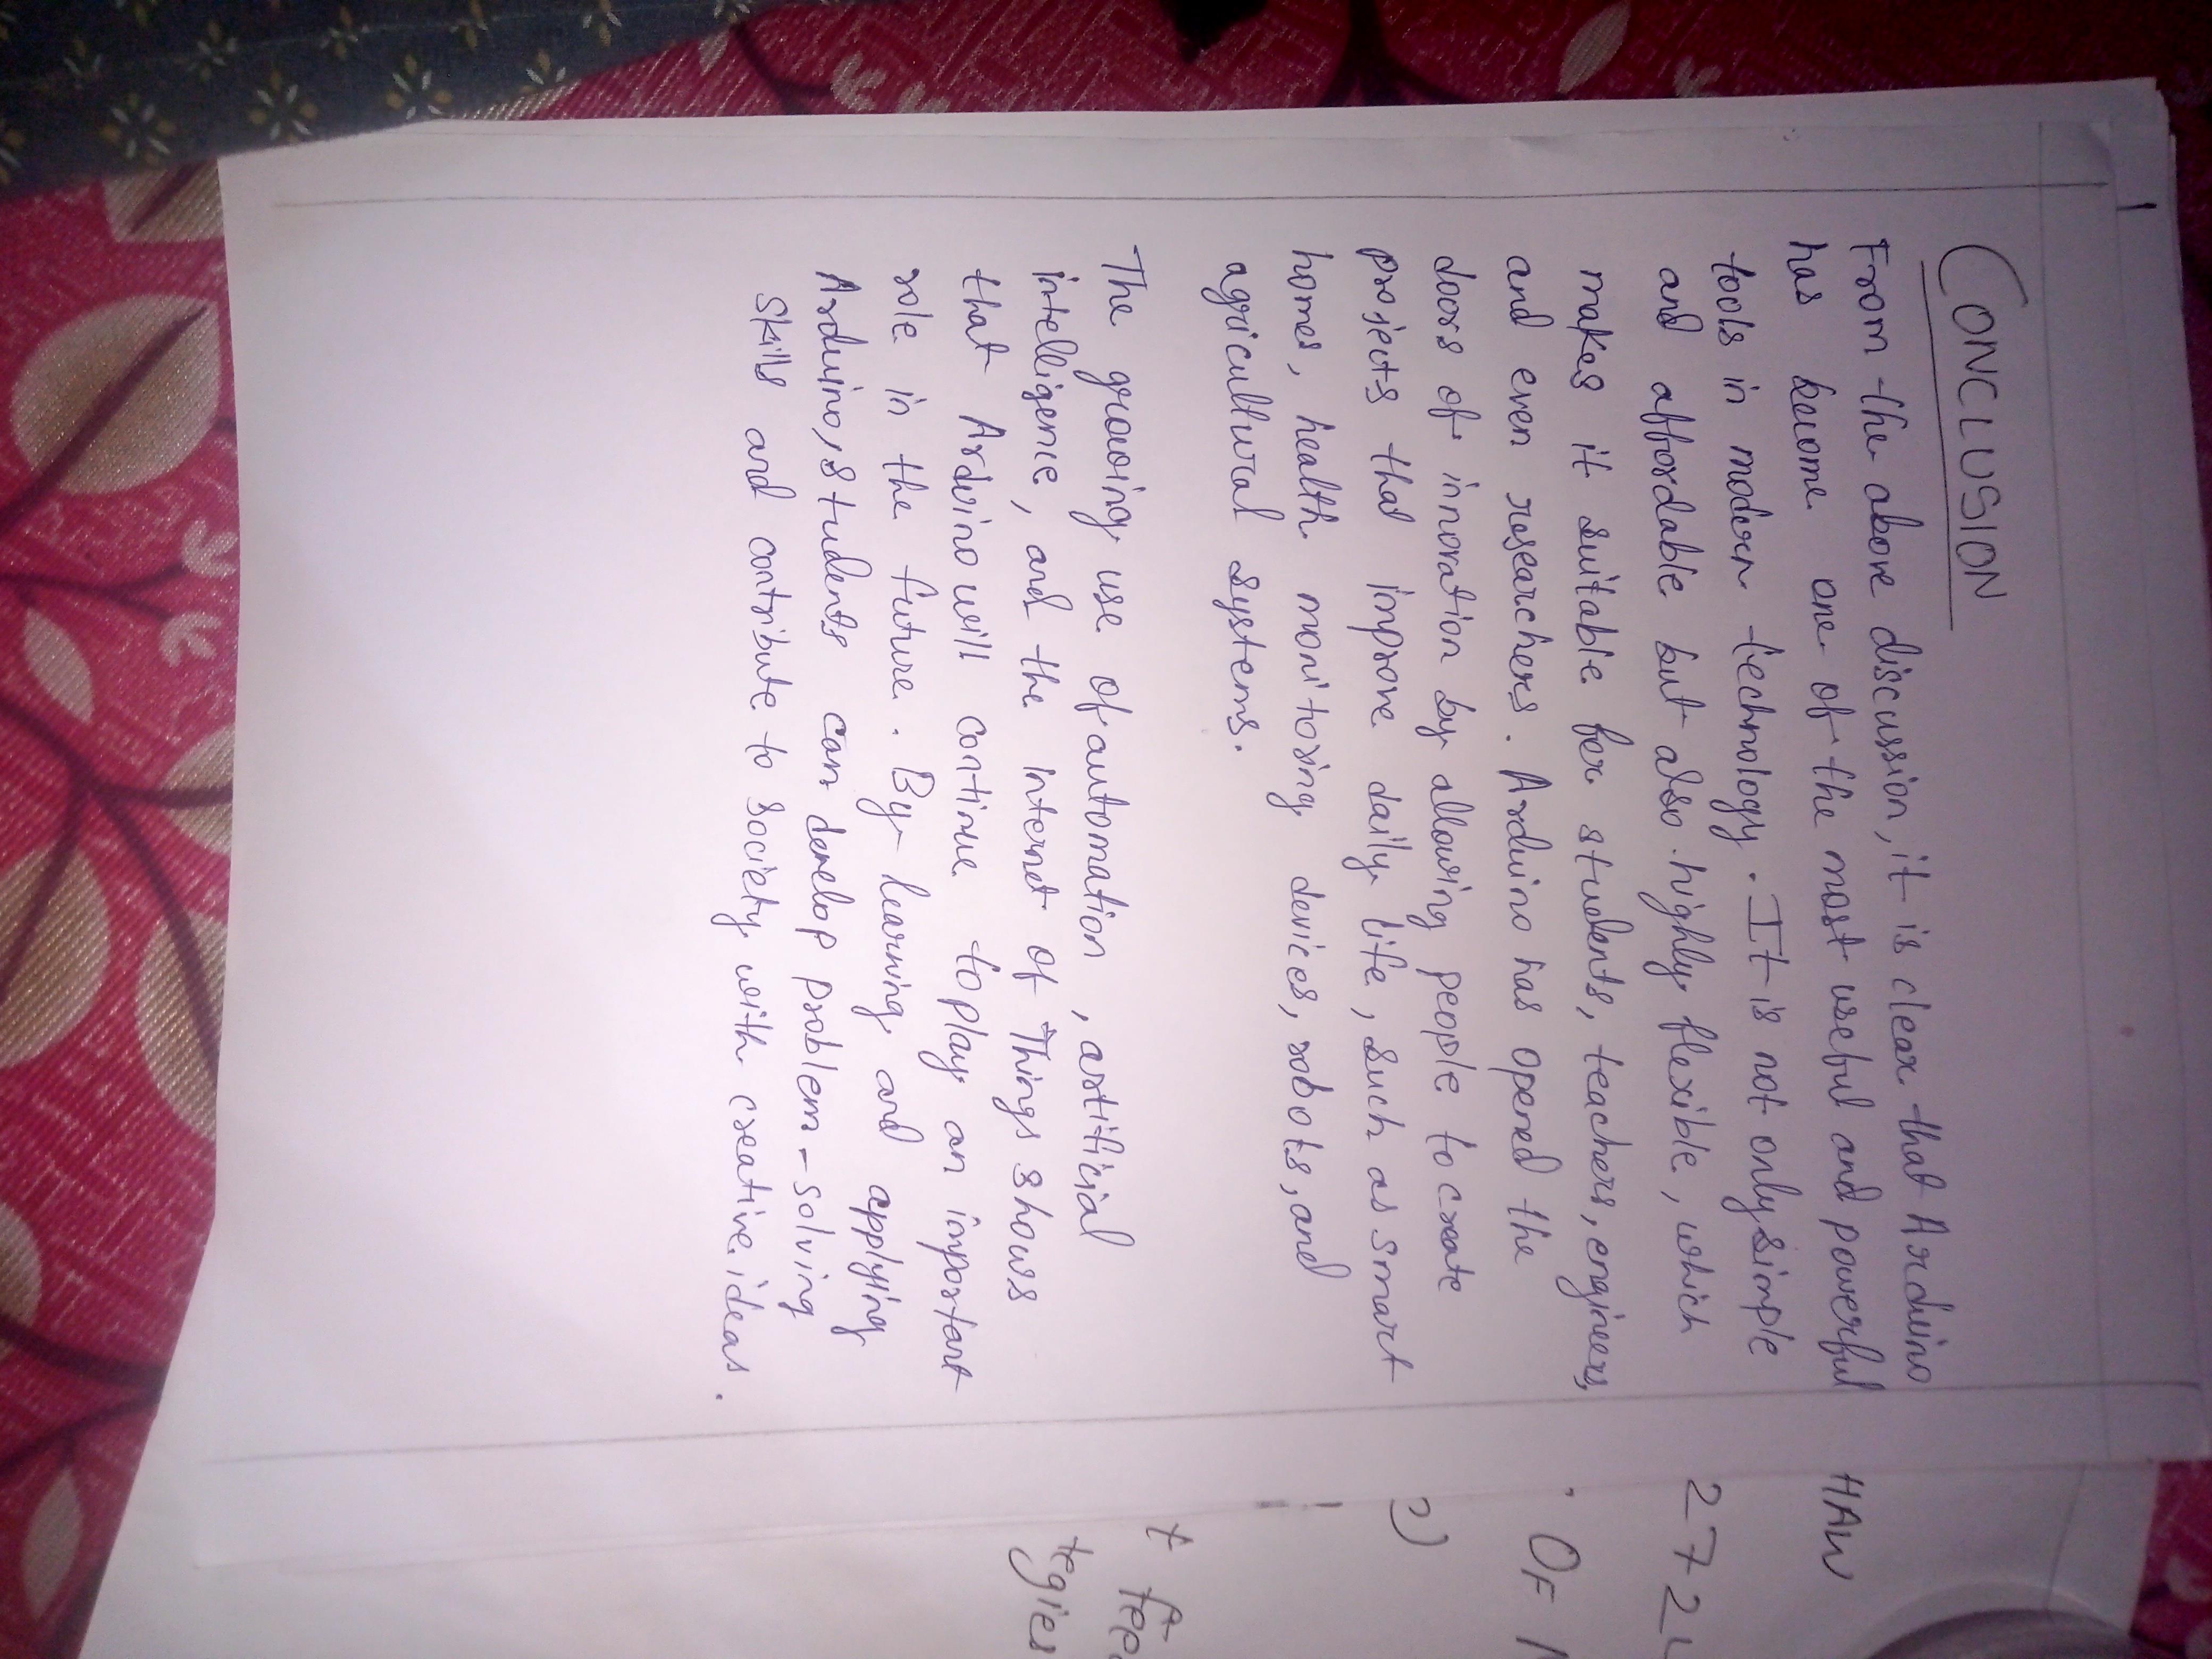 CONCLUSION
From the above discussion, it is clear that Arduino
has become one of the most useful and powerful
tools in modern technology. It is not only simple
and affordable but also highly flexible, which
makes it suitable for students, teachers, engineers,
and even researchers. Arduino has opened the
doors of innovation by allowing people to create
projects that improve daily life, such as smart
homes, health monitoring devices, robots, and
agricultural systems.
The growing use of automation, artificial
intelligence, and the Internet of Things shows
that Arduino will continue to play an important
role in the future. By learning and applying
Arduino, students can develop problem-solving
skills and contribute to society with creative ideas.
HAW
272
OF
t fee
tegies